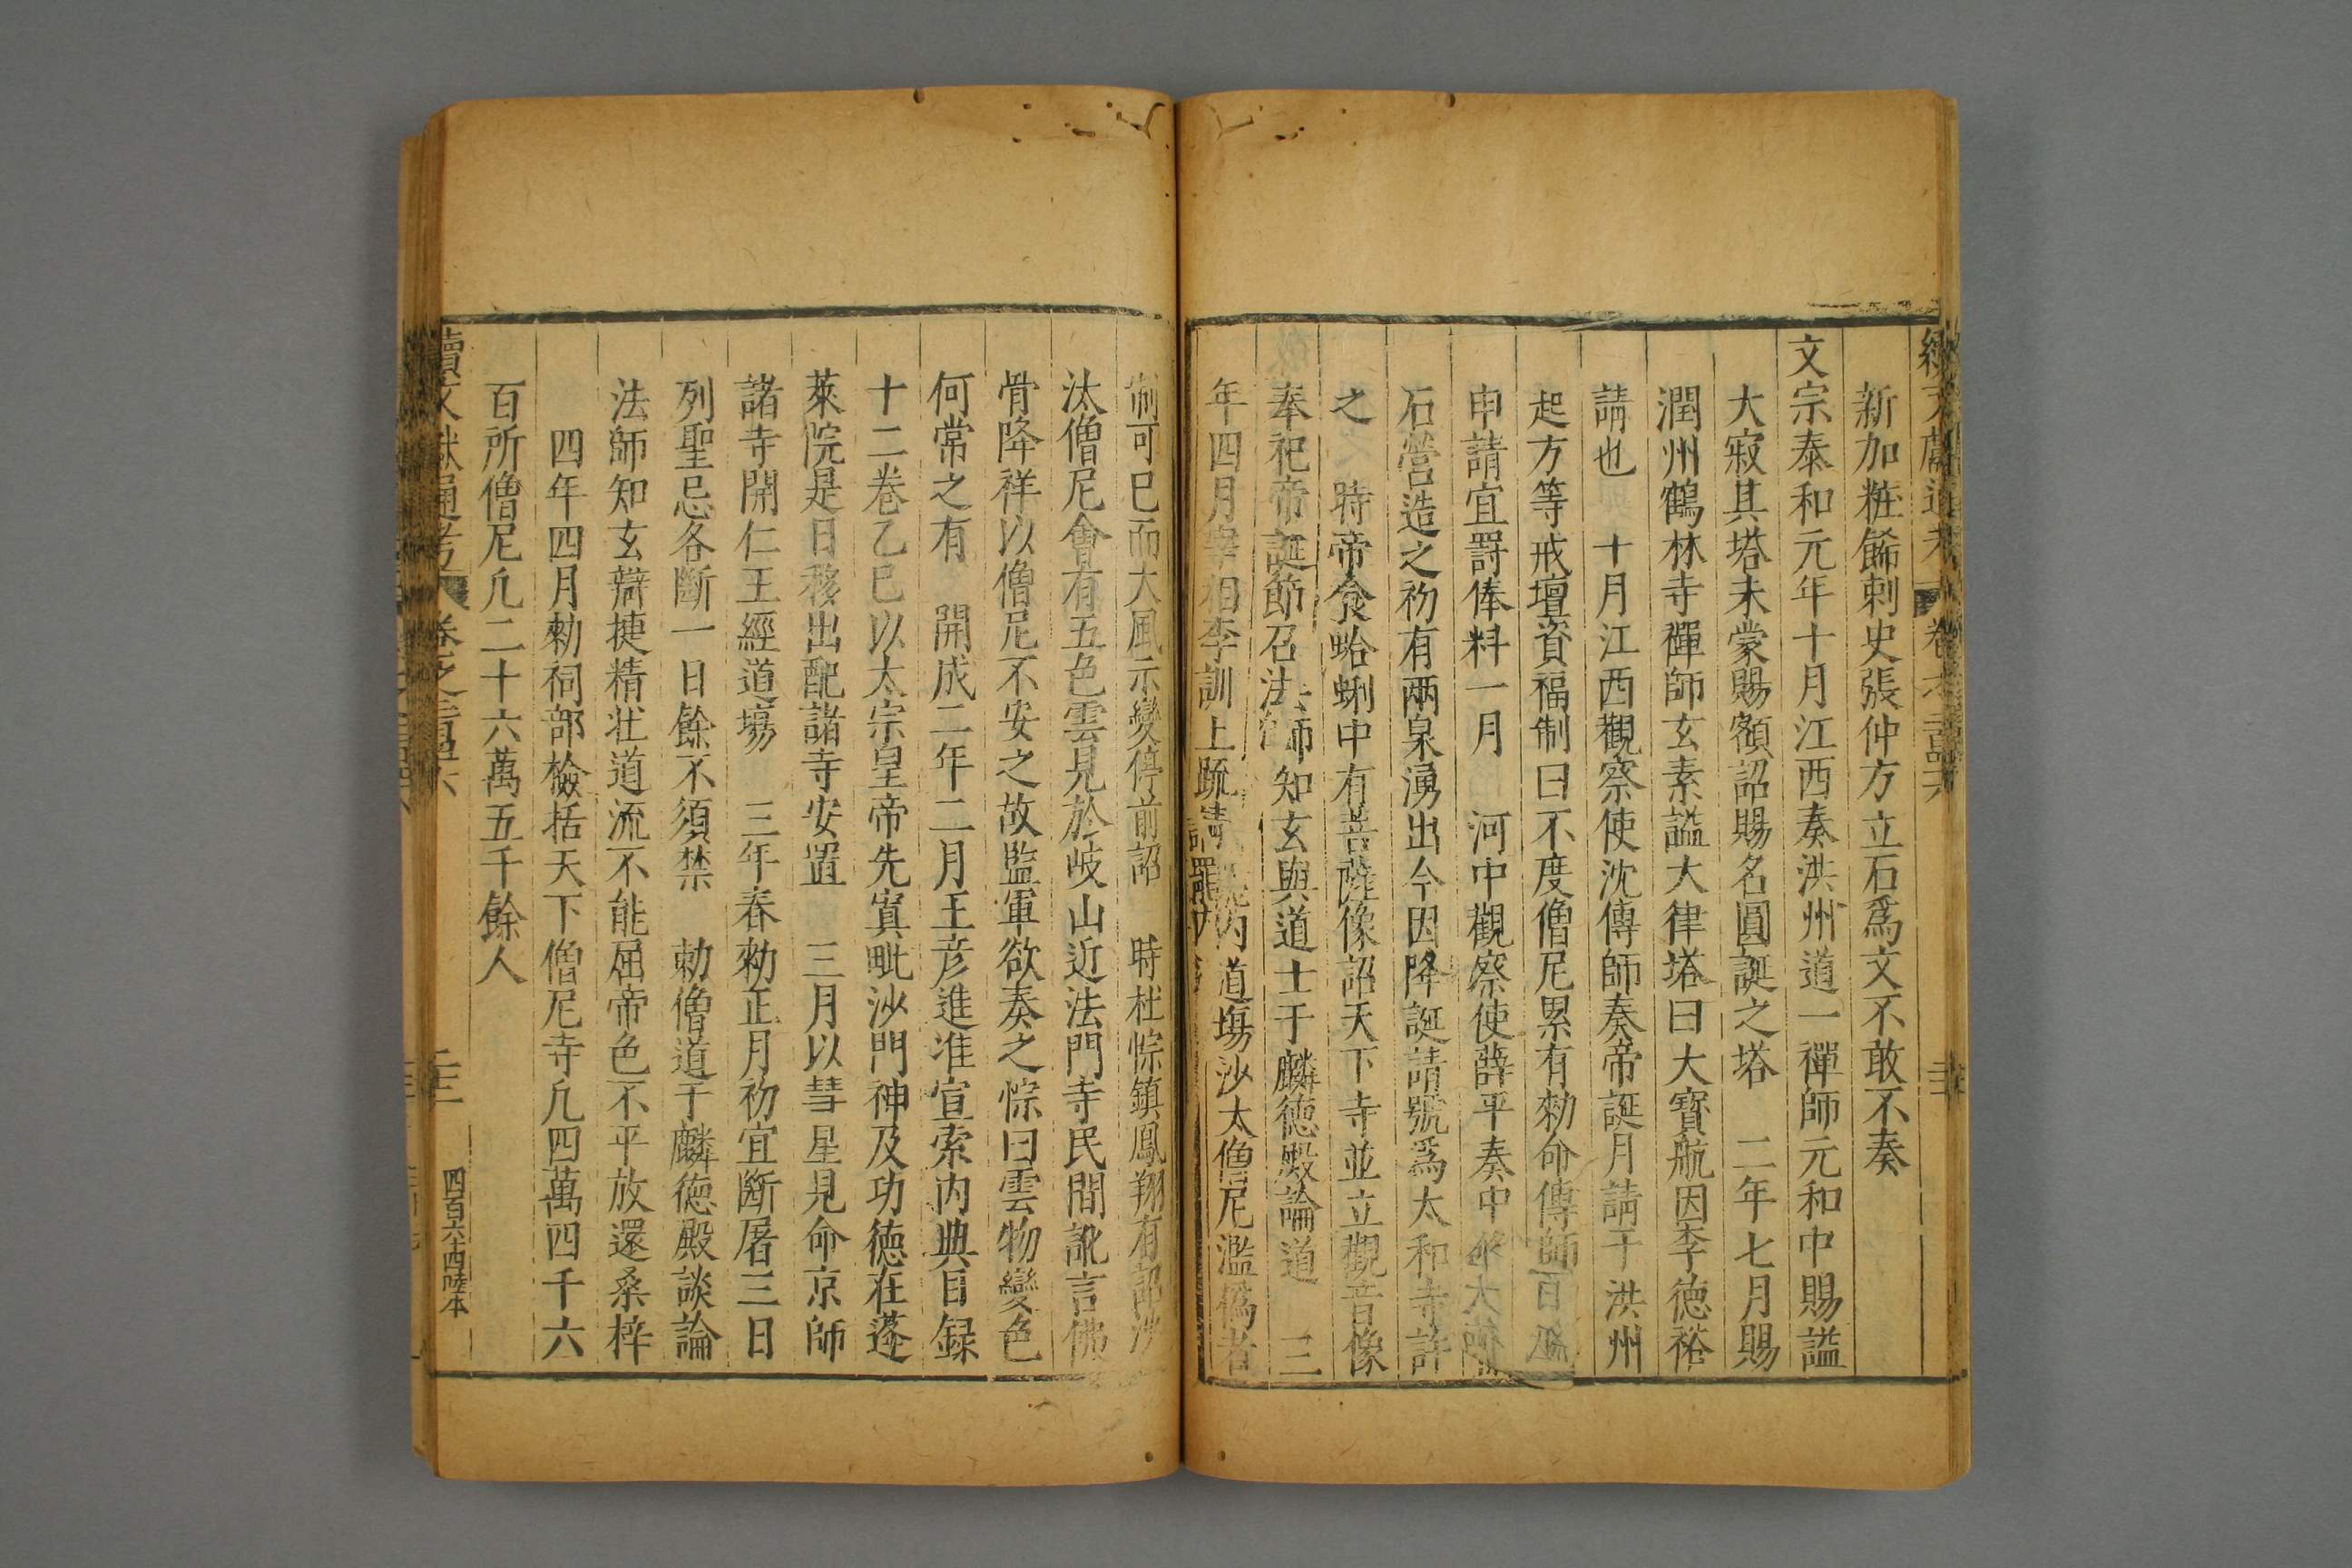 新加粧餙刺史張仲方立石爲文不敢不奏
文宗泰和元年十月江西奏洪州道一禪師元和中賜謚
大寂其塔未蒙賜額詔賜名圓誕之塔　二年七月賜
潤州鶴林寺禪師玄素謚大律塔曰大寳航因李德裕
請也　十月江西觀察使沈傳師奏帝誕月請于洪州
起方等戒壇資福制曰不度僧尼累有勑命傳師
申請宜罸俸料一月　河中觀察使薛平奏中
石營造之初有兩泉湧出今因降誕請號爲太和寺許
之　時帝食蛤蜊中有菩薩像詔天下寺並立觀音像
奉祀帝誕節召法師知玄與道士于麟德殿論道　三
年四月宰相李訓上疏請罷内道塲沙太僧尼濫僞者
制可巳而大風示變停前詔　時杜悰鎮鳳翔有詔沙
汰僧尼會有五色雲見於岐山近法門寺民間訛言佛
骨降祥以僧尼不安之故監軍欲奏之悰曰雲物變色
何常之有　開成二年二月王彦進准宣索内典目録
十二巻乙巳以太宗皇帝先寘毗沙門神及功德在蓬
萊院是日移出配諸寺安置　三月以彗星見命京師
諸寺開仁王經道塲　三年春勑正月初宜斷屠三日
列聖忌各斷一日餘不須禁　勅僧道于麟德殿談論
法師知玄辯捷精壮道流不能屈帝色不平放還桑梓
四年四月勑祠部檢括天下僧尼寺凢四萬四千六
百所僧尼凢二十六萬五千餘人
四百六十四陸本